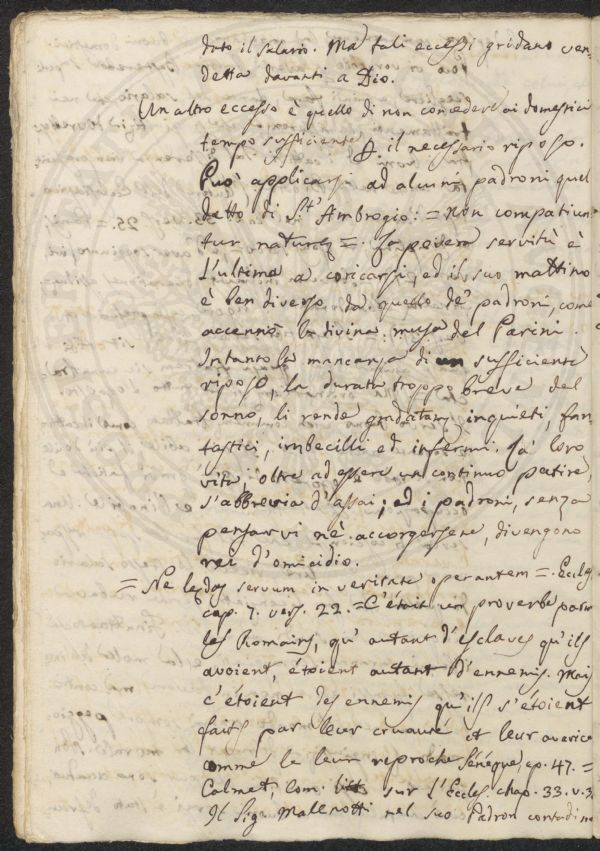 dato il salario. Ma tali eccessi gridano ven-
detta davanti a Dio.
Un altro eccesso è quello di non concedere ai domestici
tempo sufficiente p. il necessario riposo.
Può applicarsi ad alcuni padroni quel
detto di St. Ambrogio: = Non compatiun-
tur naturæ =. La povera servitù è
l'ultima a coricarsi, ed il suo mattino
è ben diverso da quello de' padroni, come
accennò la divina musa del Parini.
Intanto la mancanza di un sufficiente
riposo, la durata troppo breve del
sonno, li rende gradatam. inquieti, fan-
tastici, imbecilli ed infermi. La loro
vita, oltre ad essere un continuo patire,
s'abbrevia d'assai; ed i padroni, senza
pensarvi nè accorgersene, divengono
rei d'omicidio.
= Ne lædas servum in veritate operantem =. Eccles.
cap. 7. vers. 22. = C'étoit un proverbe parmi
les Romains, qu'autant d'esclaves qu'ils
avoient, étoient autant d'ennemis. Mais
c'étoient des ennemis qu'ils s'étoient
faits par leur cruauté et leur avarice
comme le leur reproche Sénèque, ep. 47. =
Calmet, Com. sur l'Eccles. chap. 33. v. 3
Il Sig. Malenotti nel suo Padron contadino